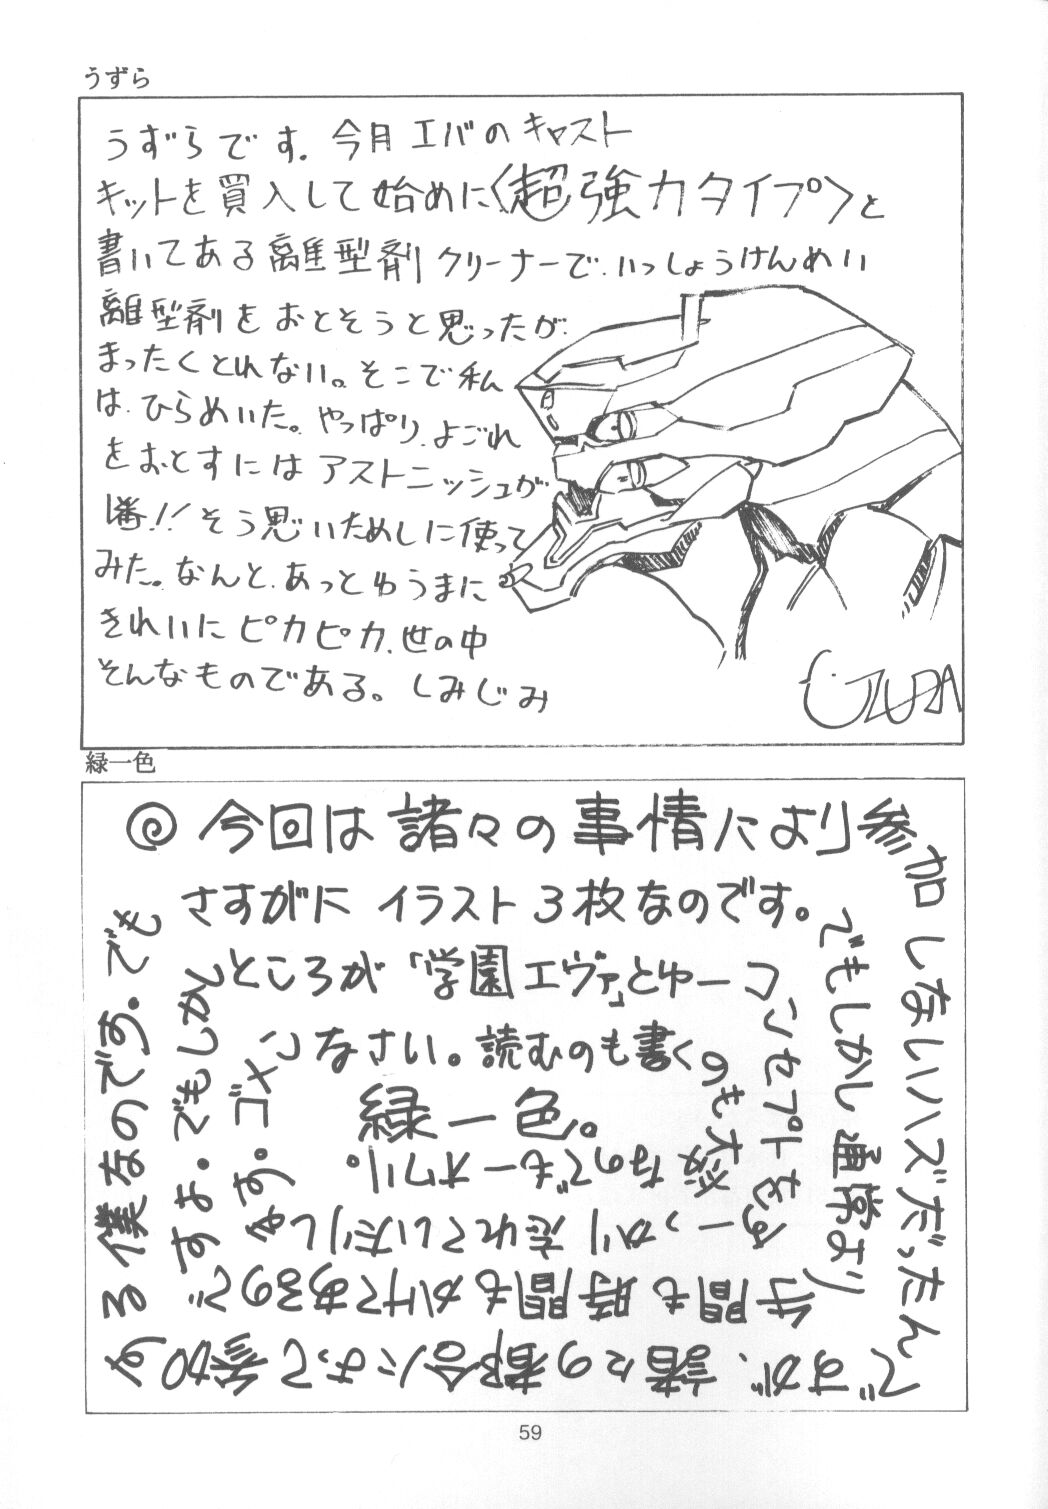 うずら
うずらです. 今月エバのキャスト
キットを買入して始めに〈超強力タイプ〉と
書いてある離型剤クリーナーで.いっしょうけんめい
離型剤をおとそうと思ったが.
まったくとれない。そこで私
は.ひらめいた。やっぱり.よごれ
をおとすにはアストニッシュが
1番!!そう思いためしに使って
みた。なんと.あっとゆうまに
きれいにピカピカ.世の中
そんなものである。しみじみ
UZURA
緑一色
今回は諸々の事情により参加
しないハズだったん
ですが、諸々の都合によって参加す
る僕なのです。でも
さすがにイラスト3枚なのです。
でもしかし通常より
手間も時間もかけてあるので
すよ。でもしかし
ところが「学園エヴァ」とゆーコ
ンセプトをす
ーっかり忘れていたりし
ます。ゴメ
ンなさい。読むのも書く
のも大変
なのでもーオワリ。
緑一色。
59